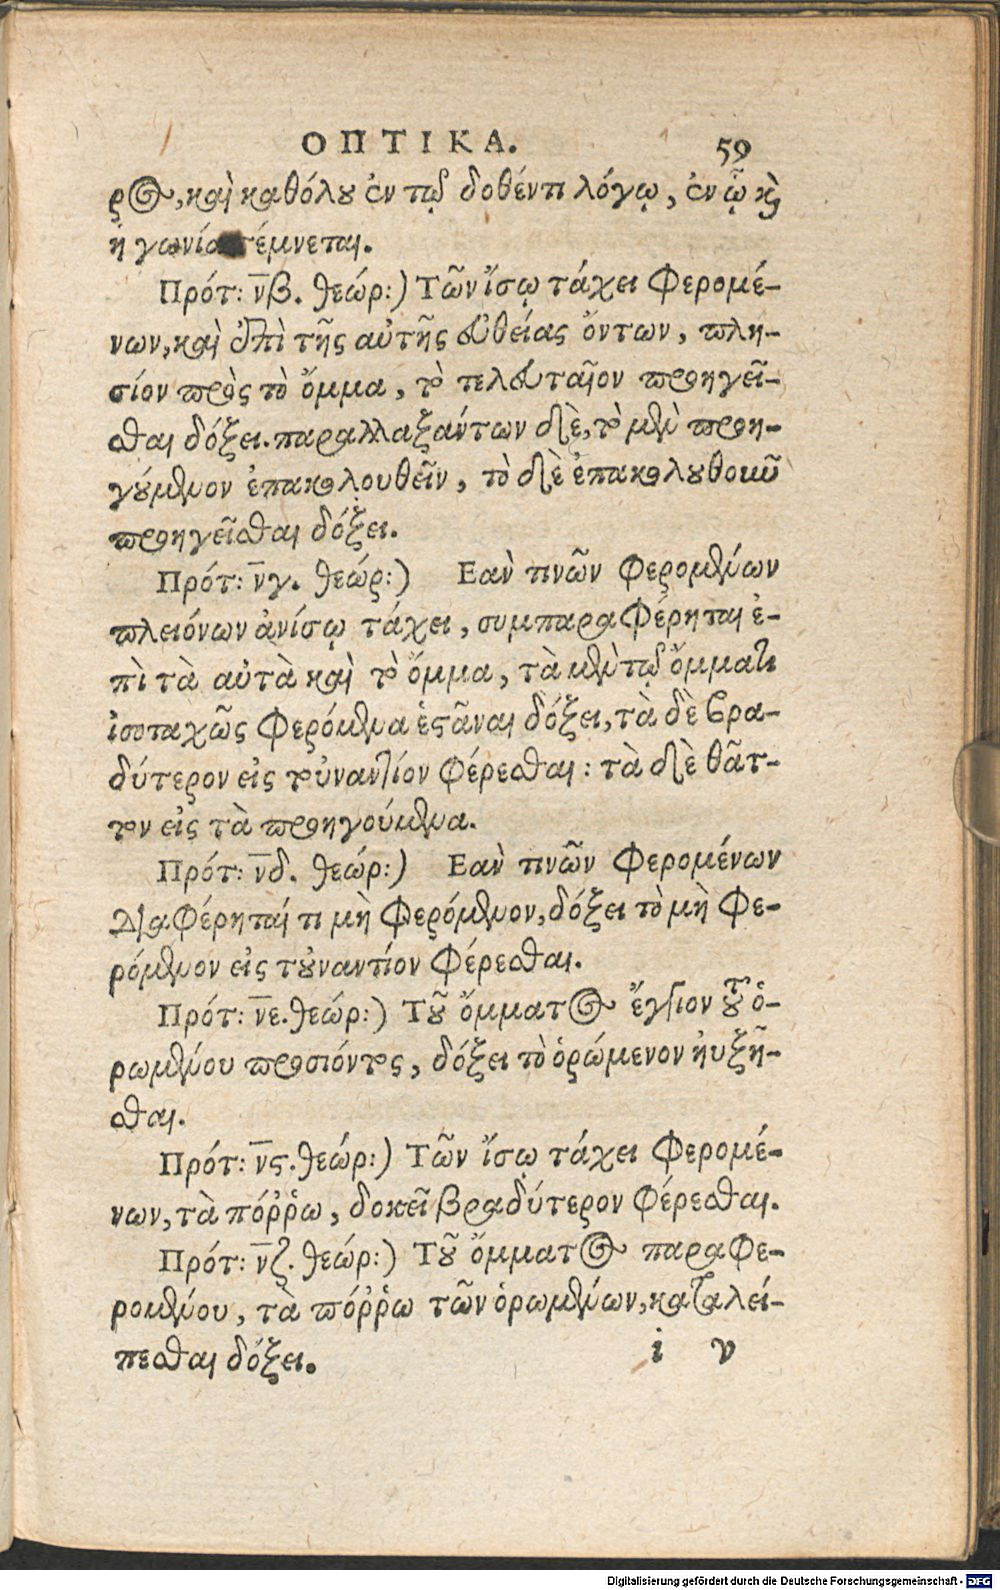 ΟΠΤΙΚΑ. 59
ρος, καὶ καθόλου ἐν τῷ δοθέντι λόγῳ, ἐν ᾧ καὶ
ἡ γωνία τέμνεται.
Πρότ: ν̅β. θεώρ:) Τῶν ἴσῳ τάχει φερομέ-
νων, καὶ ἐπὶ τῆς αὐτῆς εὐθείας ὄντων, πλη-
σίον πρὸς τὸ ὄμμα, τὸ τελευταῖον προηγεῖ-
σθαι δόξει. παραλλαξάντων δὲ, τὸ μὲν προη-
γούμενον ἐπακολουθεῖν, τὸ δὲ ἐπακολουθοῦν
προηγεῖσθαι δόξει.
Πρότ: ν̅γ. θεώρ:) Εὰν τινῶν φερομένων
πλειόνων ἀνίσῳ τάχει, συμπαραφέρηται ἐ-
πὶ τὰ αὐτὰ καὶ τὸ ὄμμα, τὰ μὲν τῷ ὄμματι
ἰσοταχῶς φερόμενα ἑστᾶναι δόξει, τὰ δὲ βρα-
δύτερον εἰς τοὐναντίον φέρεσθαι: τὰ δὲ θᾶτ-
τον εἰς τὰ προηγούμενα.
Πρότ: ν̅δ. θεώρ:) Εὰν τινῶν φερομένων
διαφέρηταί τι μὴ φερόμενον, δόξει τὸ μὴ φε-
ρόμενον εἰς τοὐναντίον φέρεσθαι.
Πρότ: ν̅ε. θεώρ:) Τοῦ ὄμματος ἔγγιον τοῦ ὁ-
ρωμένου προσιόντος, δόξει τὸ ὁρώμενον ηὐξῆ-
σθαι.
Πρότ: ν̅ϛ. θεώρ:) Τῶν ἴσῳ τάχει φερομέ-
νων, τὰ πόῤῥω, δοκεῖ βραδύτερον φέρεσθαι.
Πρότ: ν̅ζ. θεώρ:) Τοῦ ὄμματος παραφε-
ρομένου, τὰ πόῤῥω τῶν ὁρωμένων, καταλεί-
πεσθαι δόξει.
i v
Digitalisierung gefördert durch die Deutsche Forschungsgemeinschaft - DFG